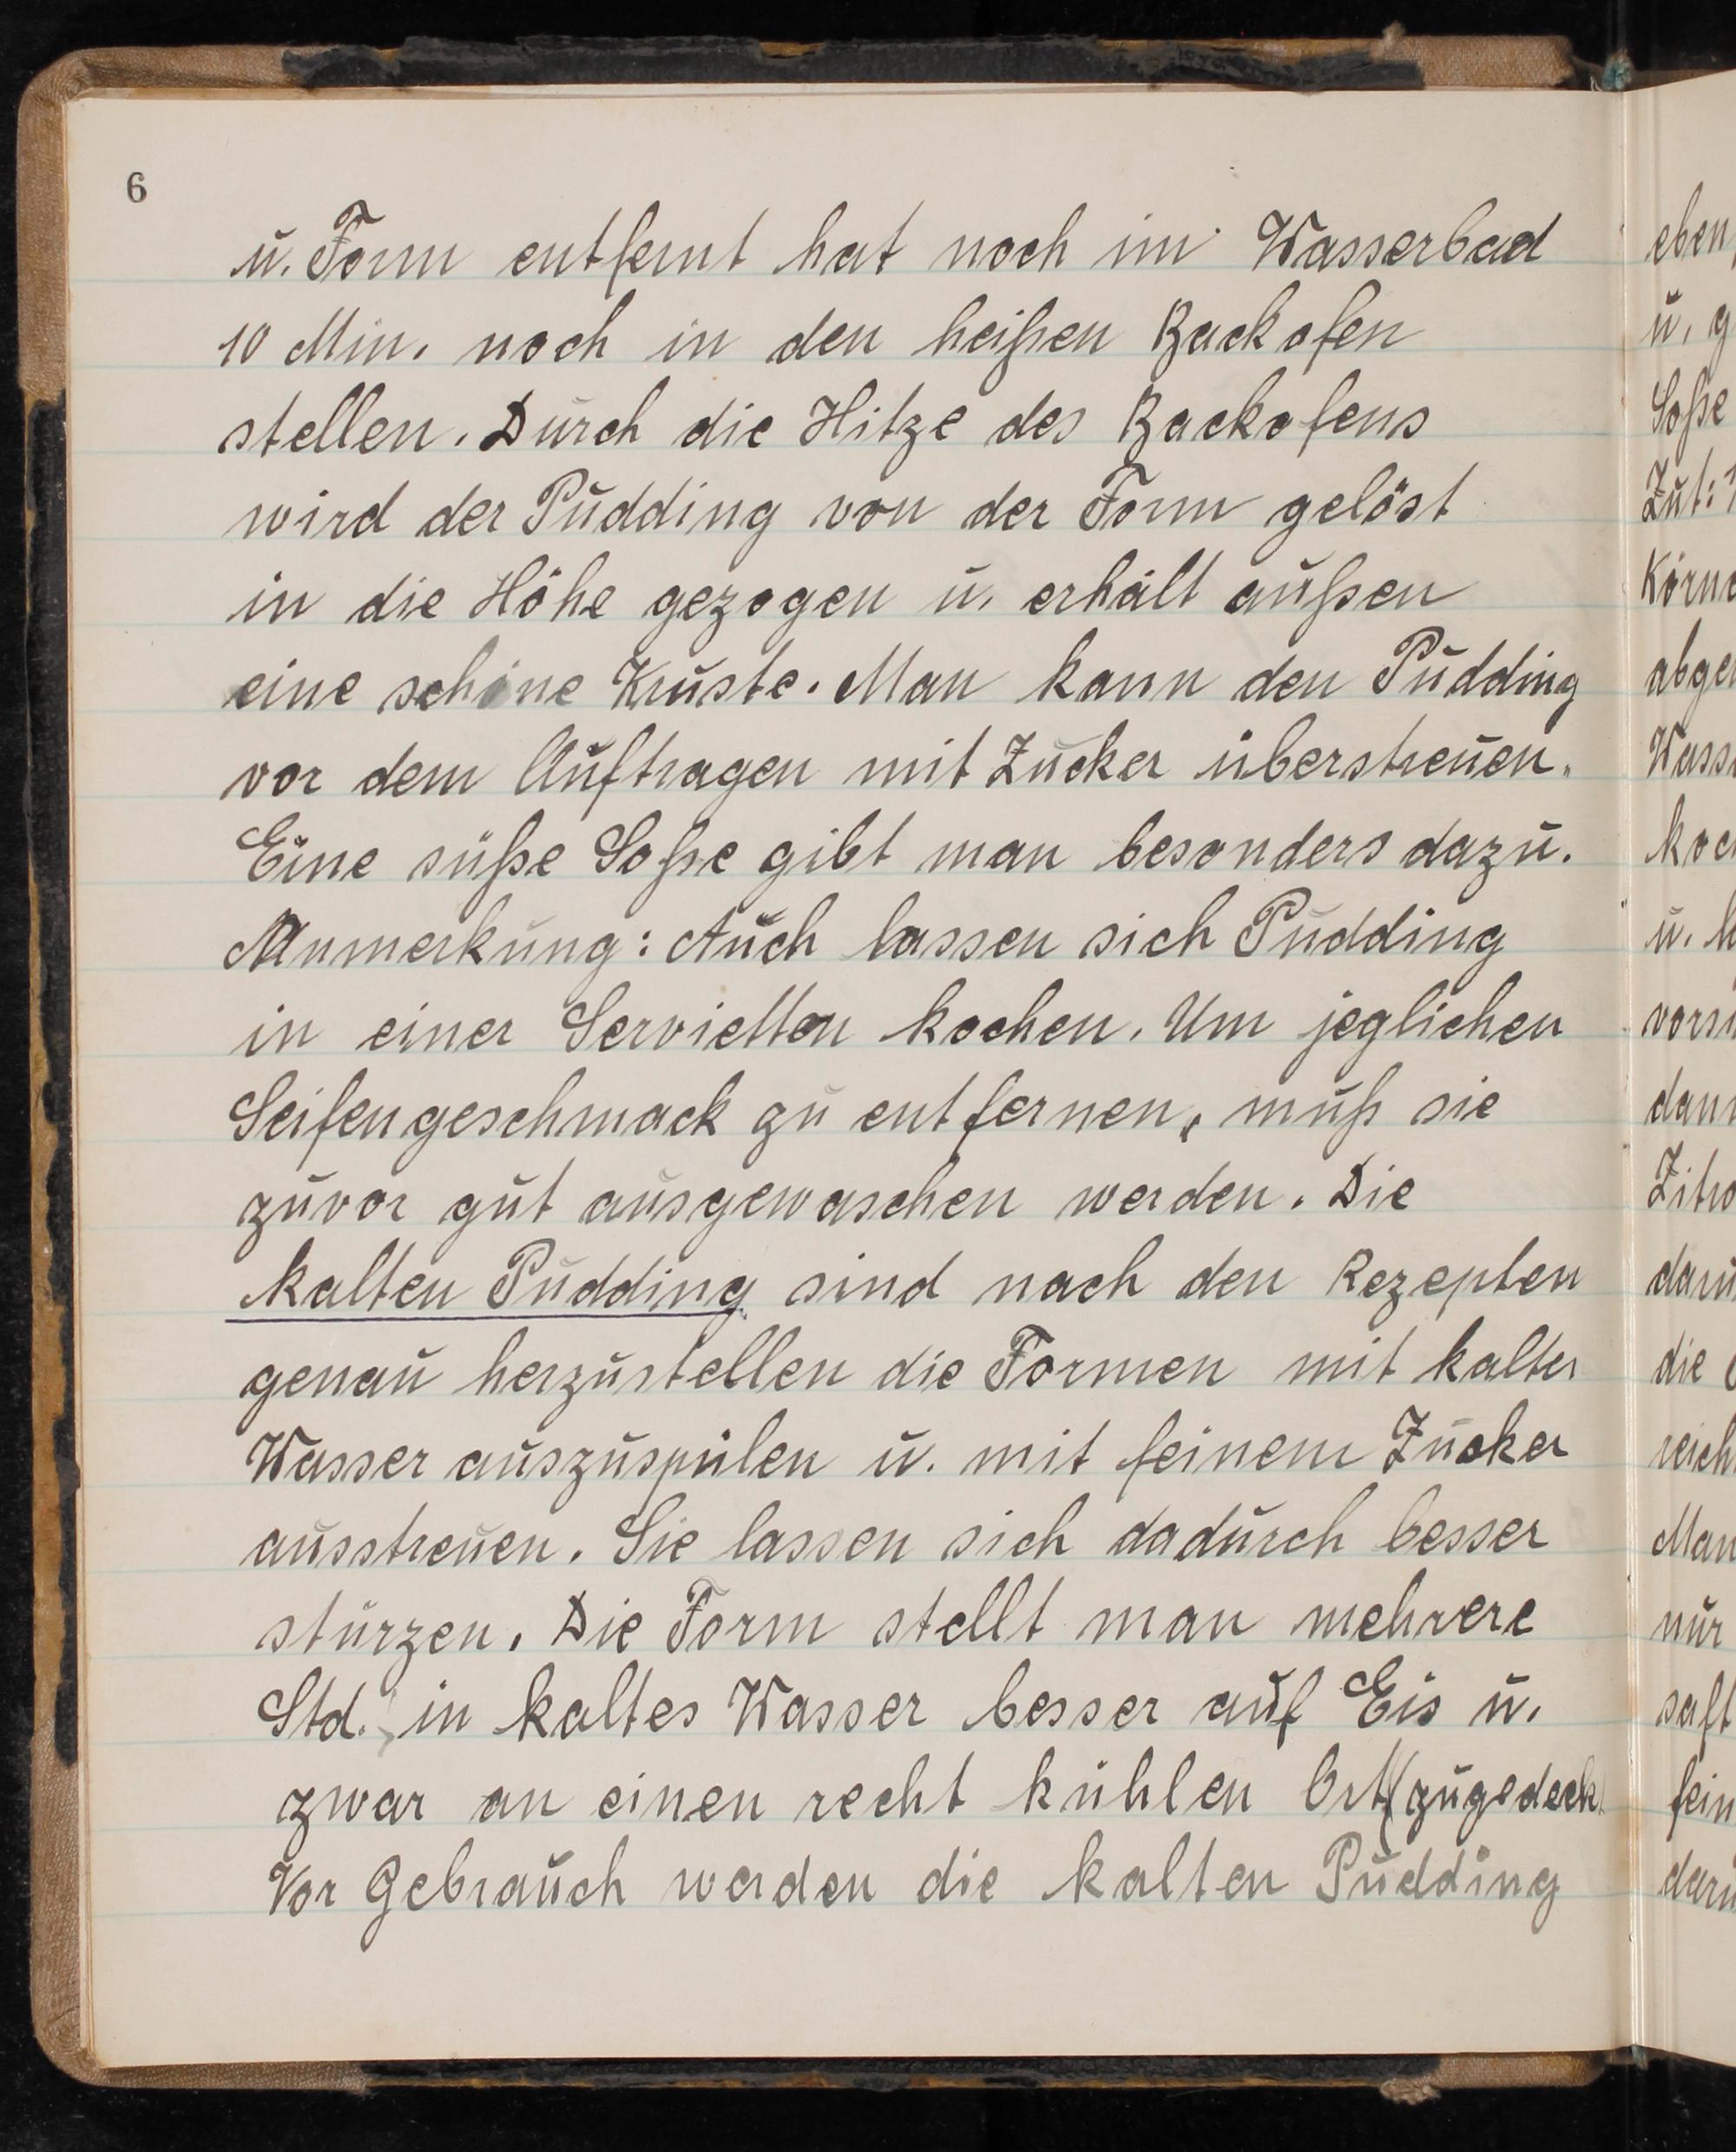 6
u. Form entfernt hat noch im Wasserbad
10 Min. noch in den heißen Backofen
stellen. Durch die Hitze des Backofens
wird der Pudding von der Form gelöst
in die Höhe gezogen u. erhält außen
eine schöne Kruste. Man kann den Pudding
vor dem Auftragen mit Zucker überstreuen.
Eine süße Soße gibt man besonders dazu.
Anmerkung: Auch lassen sich Pudding
in einer Servietten kochen. Um jeglichen
Seifengeschmack zu entfernen, muß sie
zuvor gut ausgewaschen werden. Die
kalten Pudding sind nach den Rezepten
genau herzustellen die Formen mit kalter
Wasser auszuspülen u. mit feinem Zucker
ausstreuen. Sie lassen sich dadurch besser
stürzen. Die Form stellt man mehrere
Std. in kaltes Wasser besser auf Eis u.
zwar an einen recht kühlen Ort (zugedeckt
Vor Gebrauch werden die kalten Pudding
eben
u. g
Soße
Zut:
Körne
abge
Wass
koc
u.
vors
dann
Zitro
daru
die
reich
Man
nur
saft
fein
daru